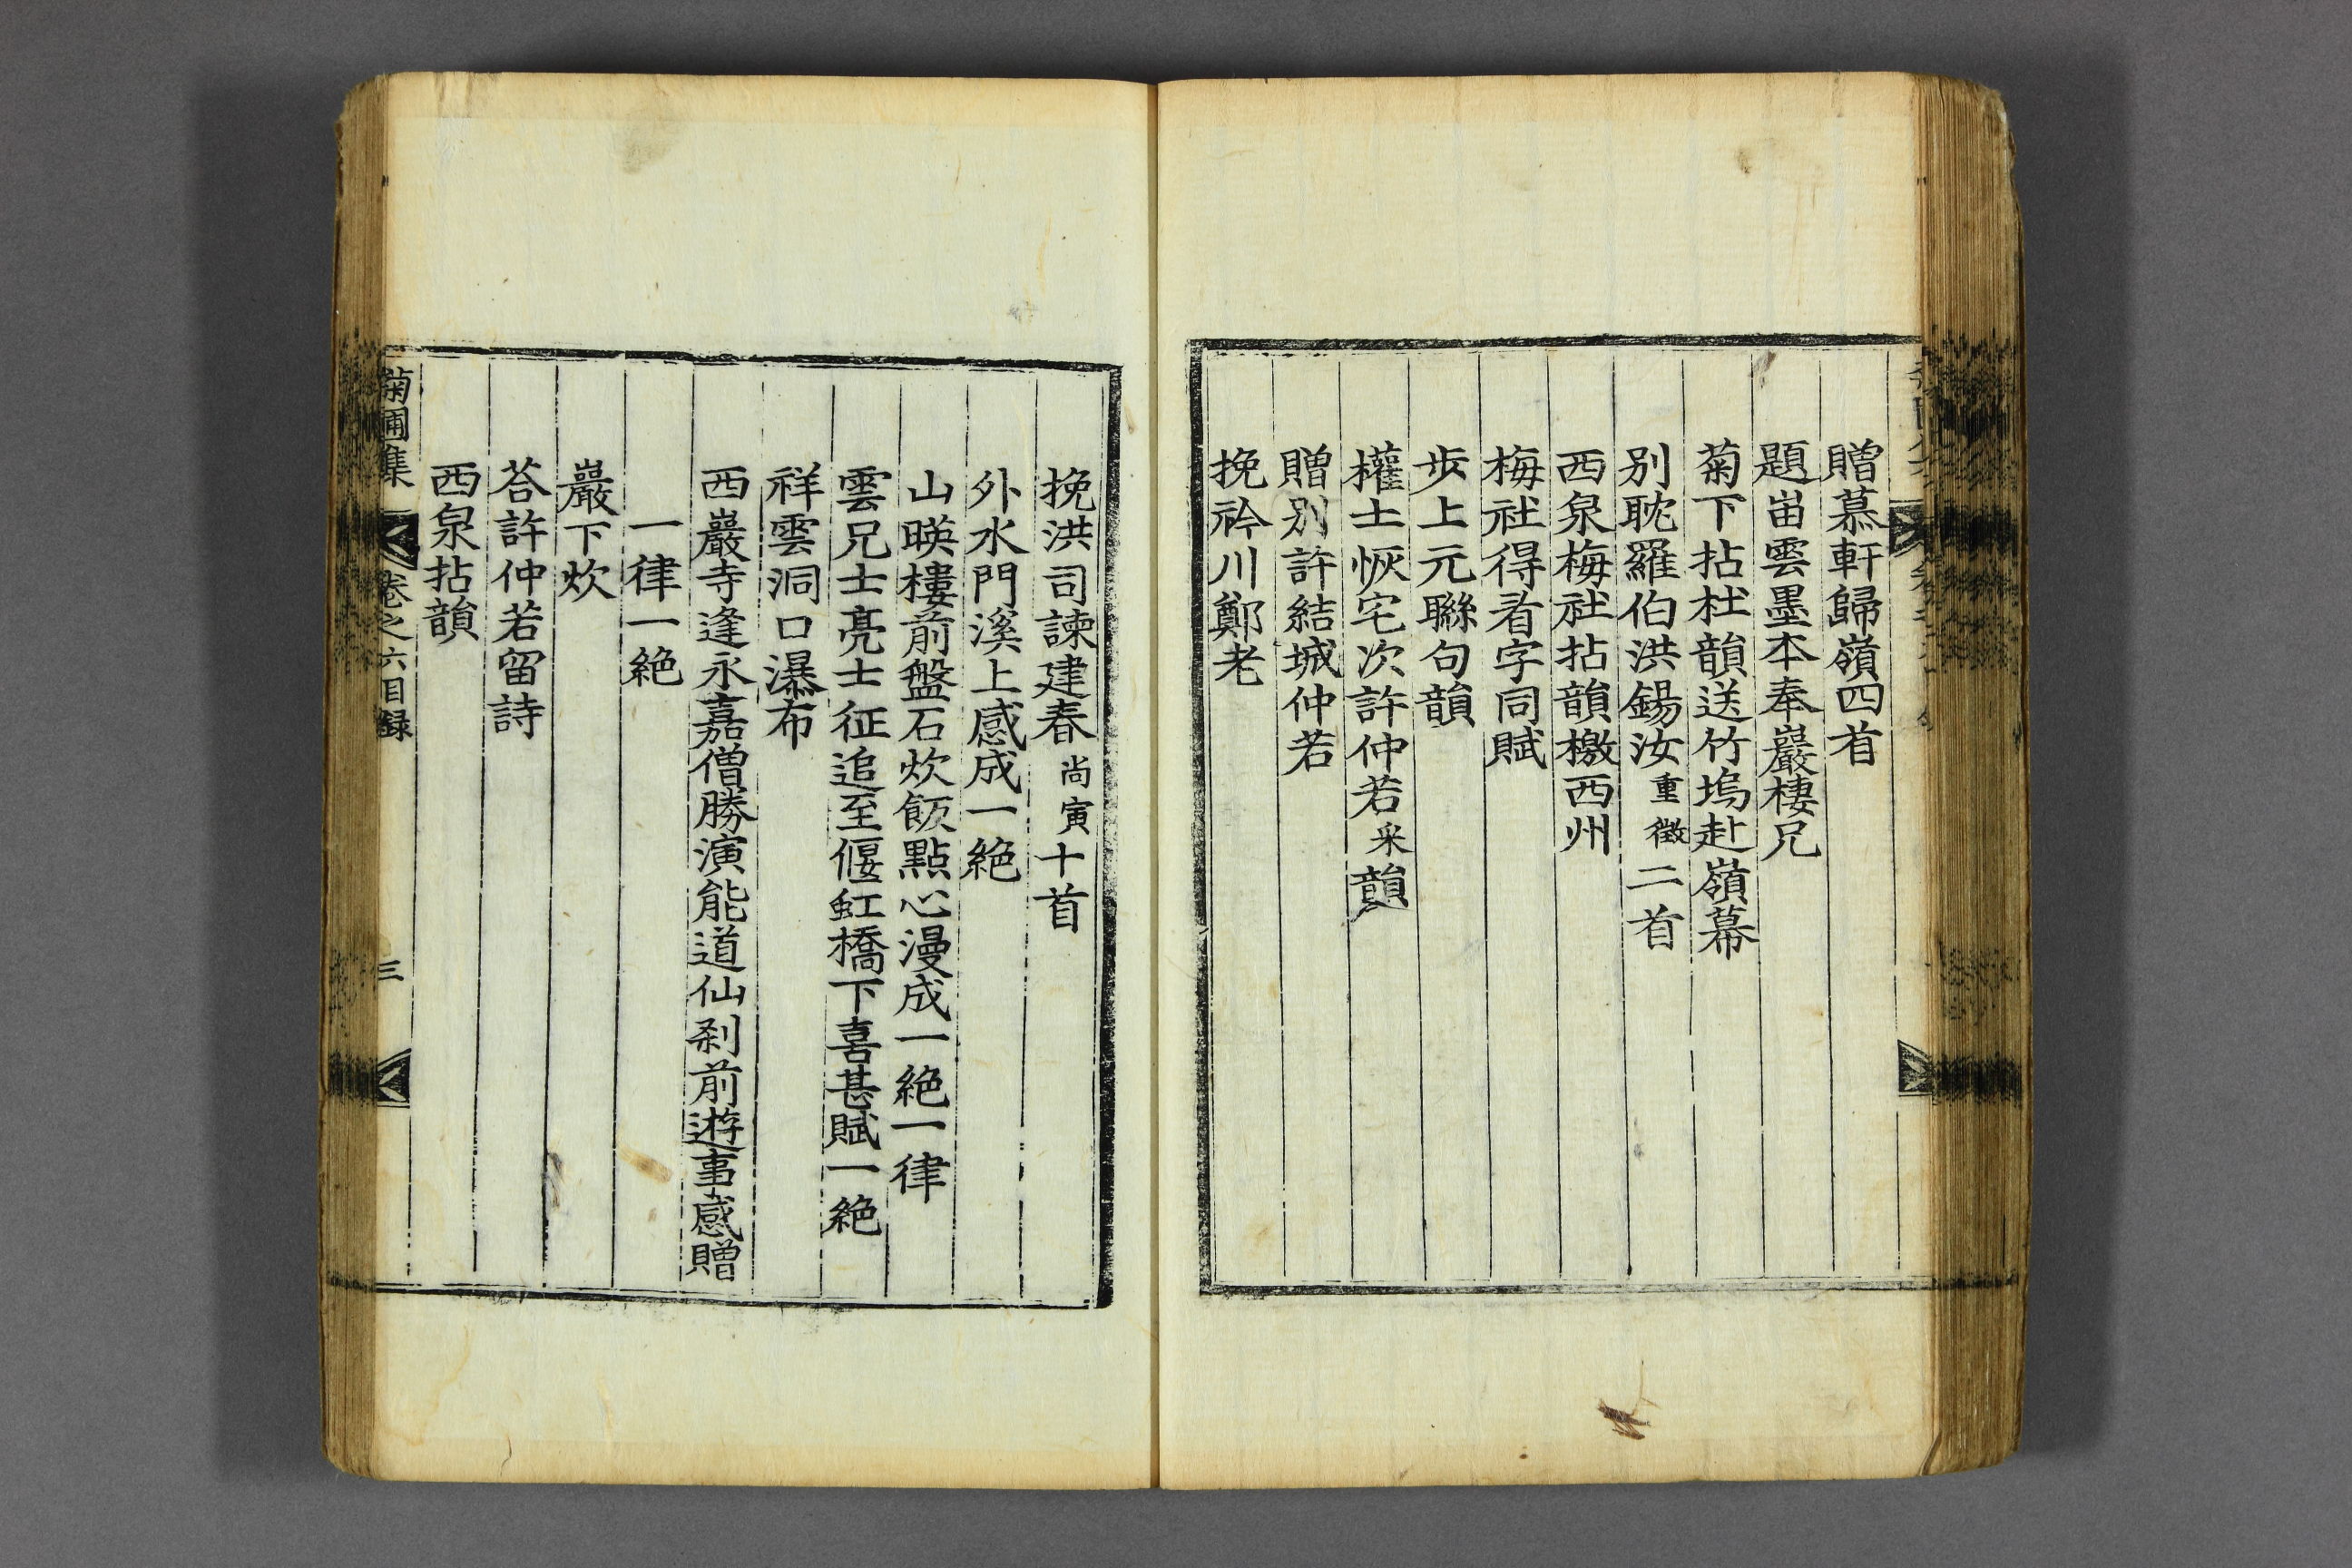 贈慕軒歸嶺四首
題畄雲墨本奉巖棲兄
菊下拈杜韻送竹塢赴嶺幕
別耽羅伯洪錫汝重徵二首
西泉梅社拈韻檄西州
梅社得看字同賦
步上元聯句韻
權士恢宅次許仲若采韻
贈別許結城仲若
挽衿川鄭老
挽洪司諫建春尚寅十首
外水門溪上感成一絶
山暎樓前盤石炊飯點心漫成一絶一律
雲兄士亮士征追至偃虹橋下喜甚賦一絶
祥雲洞口瀑布
西巖寺逢永嘉僧勝演能道仙刹前遊事感贈
一律一絶
巖下炊
荅許仲若留詩
西泉拈韻
菊圃集 卷之六目録 三